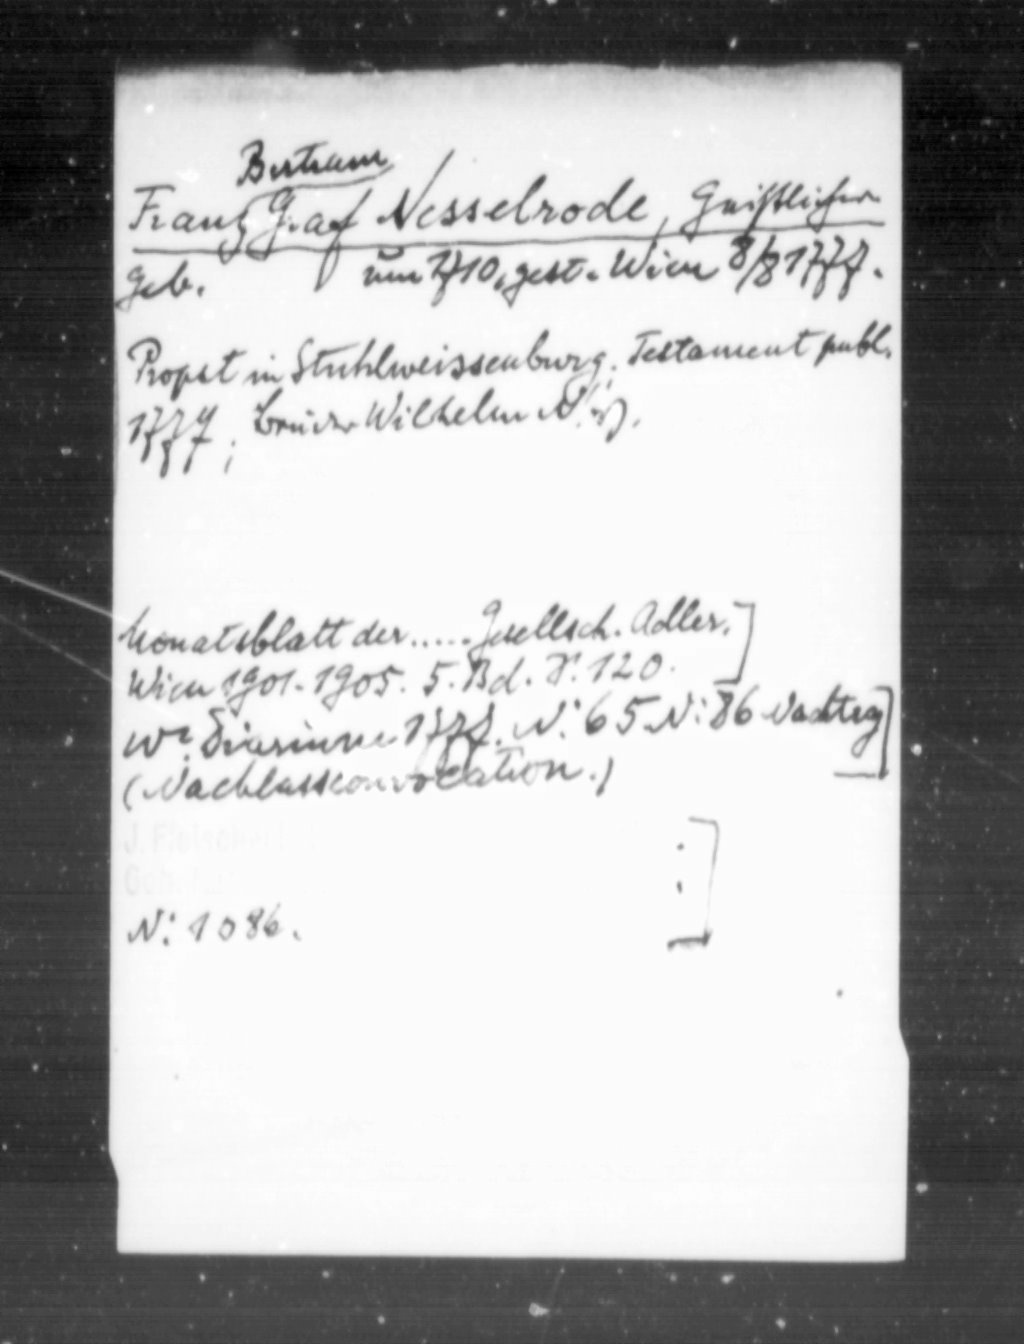 Bertram
Franz Graf Nesselrode, Geistlicher
geb. um 1710, gest. Wien 8/8 1777.
Propst in Stuhlweissenburg. Testament publ.
1777; Bruder Wilhelm N.
Monatsblatt der ..... Gesellsch. Adler.]
Wien 1901-1905. 5. Bd. S. 120.
Wr. Diarium 1777. N: 65 N: 86 Nachtrag]
(Nachlassconvocation.)
N: 1086.